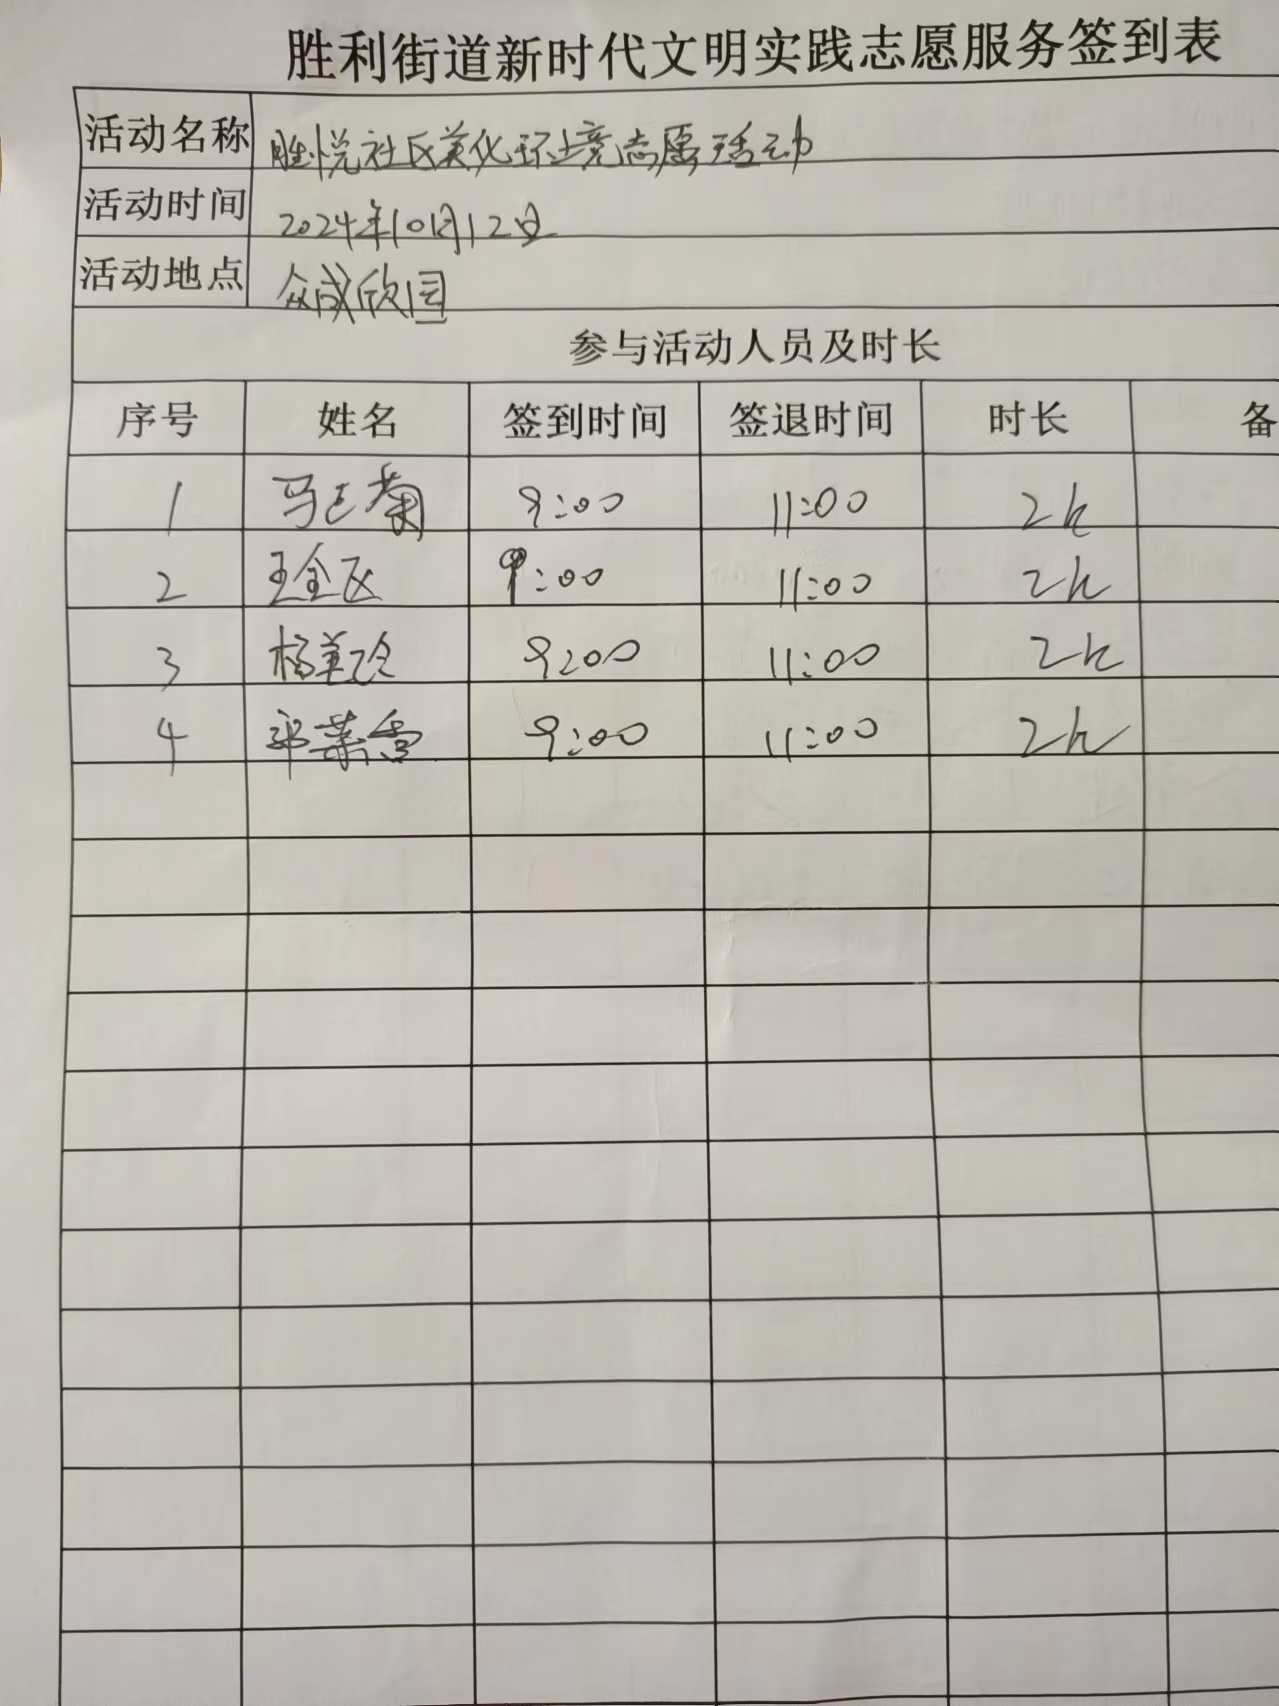 胜利街道新时代文明实践志愿服务签到表
活动名称 胜悦社区美化环境志愿活动
活动时间 2024年10月12日
活动地点 众成欣园
参与活动人员及时长
序号 姓名 签到时间 签退时间 时长 备
1 马 菊 9:00 11:00 2h
2 王全区 9:00 11:00 2h
3 杨美玲 9:00 11:00 2h
4 9:00 11:00 2h